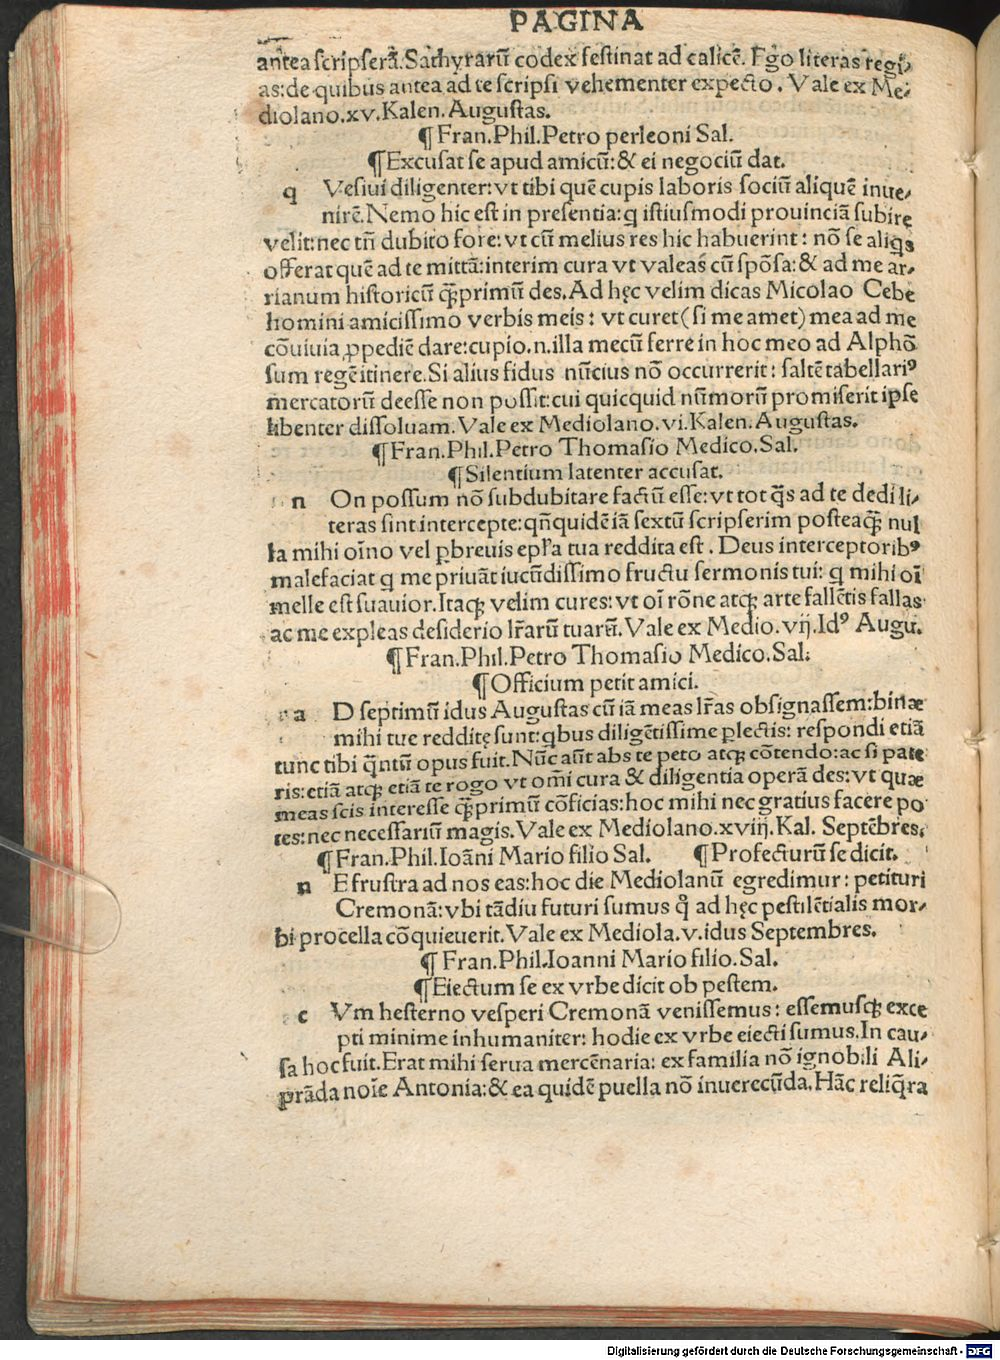 PAGINA
antea scripserā. Sathyrarū codex festinat ad calicē. Ego literas regi⸗
as: de quibus antea ad te scripsi vehementer expecto. Vale ex Me⸗
diolano. xv. Kalen. Augustas.
¶ Fran. Phil. Petro perleoni Sal.
¶ Excusat se apud amicū: & ei negociū dat.
q Vesiui diligenter: vt tibi quē cupis laboris sociū aliquē inue⸗
nirē. Nemo hic est in presentia: q istiusmodi prouinciā subire
velit: nec tn̄ dubito fore: vt cū melius res hic habuerint: nō se aliq̄s
offerat quē ad te mittā: interim cura vt valeas cū spōsa: & ad me ar⸗
rianum historicū q̄ꝫprimū des. Ad hęc velim dicas Micolao Cebe
homini amicissimo verbis meis: vt curet (si me amet) mea ad me
cōuiuia ꝓpediē dare: cupio. n. illa mecū ferre in hoc meo ad Alphō
sum regē itinere. Si alius fidus nūcius nō occurrerit: saltē tabellariꝰ
mercatorū deesse non possit: cui quicquid nūmorū promiserit ipse
libenter dissoluam. Vale ex Mediolano. vi. Kalen. Augustas.
¶ Fran. Phil. Petro Thomasio Medico. Sal.
¶ Silentium latenter accusat.
n On possum nō subdubitare factū esse: vt tot q̄s ad te dedi li⸗
teras sint intercepte: qn̄quidē iā sextū scripserim posteaq̄ꝫ nul
la mihi oīno vel ꝑbreuis epl'a tua reddita est. Deus interceptoribꝰ
malefaciat q me priuāt iucūdissimo fructu sermonis tui: q mihi oī
melle est suauior. Itaqꝫ velim cures: vt oī rōne atqꝫ arte fallētis fallas
ac me expleas desiderio lr̄arū tuarū. Vale ex Medio. vij. Idꝰ Augu.
¶ Fran. Phil. Petro Thomasio Medico. Sal.
¶ Officium petit amici.
a D septimū idus Augustas cū iā meas lr̄as obsignassem: binæ
mihi tue redditę sunt: qbus diligētissime ꝑlectis: respondi etiā
tunc tibi q̄ntū opus fuit. Nūc aūt abs te peto atqꝫ cōtendo: ac si pate
ris: etiā atqꝫ etiā te rogo vt om̄i cura & diligentia operā des: vt quæ
meas scis interesse q̄ꝫprimū cōficias: hoc mihi nec gratius facere po
tes: nec necessariū magis. Vale ex Mediolano. xviij. Kal. Septēbres.
¶ Fran. Phil. Ioāni Mario filio Sal. ¶ Profecturū se dicit.
n E frustra ad nos eas: hoc die Mediolanū egredimur: petituri
Cremonā: vbi tādiu futuri sumus q̄ ad hęc pestilētialis mor⸗
bi procella cōquieuerit. Vale ex Mediola. v. idus Septembres.
¶ Fran. Phil. Ioanni Mario filio. Sal.
¶ Eiectum se ex vrbe dicit ob pestem.
c Vm hesterno vesperi Cremonā venissemus: essemusqꝫ exce
pti minime inhumaniter: hodie ex vrbe eiecti sumus. In cau⸗
sa hoc fuit. Erat mihi serua mercēnaria: ex familia nō ignobili Ali⸗
prāda noīe Antonia: & ea quidē puella nō inuerecūda. Hāc reliq̄ra
Digitalisierung gefördert durch die Deutsche Forschungsgemeinschaft - DFG